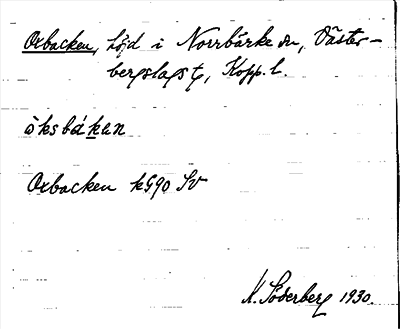 Oxbacken, höjd i Norrbärke sn, Väster-
bergslags tg, Kopp. l.
öksbákan
Oxbacken kG90 SV
K. Söderberg 1930.